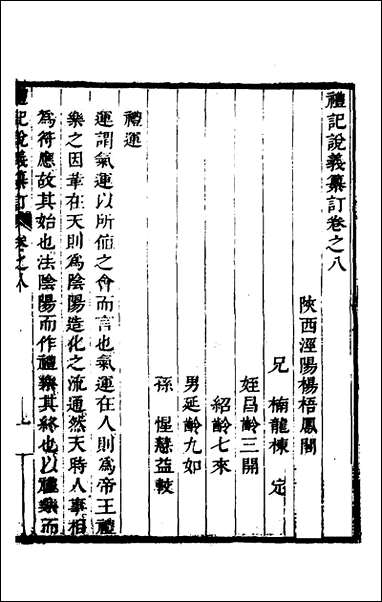 禮記說義纂訂卷之八
陝西涇陽楊梧鳳閣
兄 楠龍棟 定
姪昌齡三開
紹齡七來
男延齡九如
孫 惺慧益較
禮運
運謂氣運以所值之會而言也氣運在人則為帝王禮
樂之因革在天則為陰陽造化之流通然天時人事相
為符應故其始也法陰陽而作禮樂其終也以禮樂而
禮記說義纂訂 卷之八 一